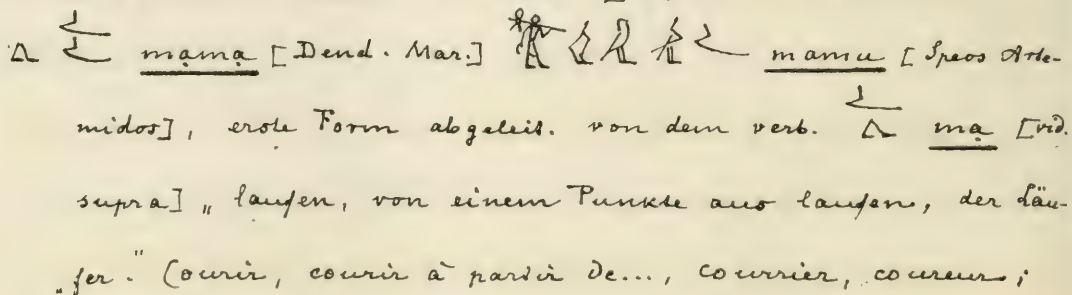 mạmạ [Dend. Mar.] mamu [Speos Arte-
midos], erste Form abgeleit. von dem verb. mạ [vid.
supra] „laufen, von einem Punkte aus laufen, der Läu-
„fer.“ Courir, courir à partir de..., courrier, coureur;